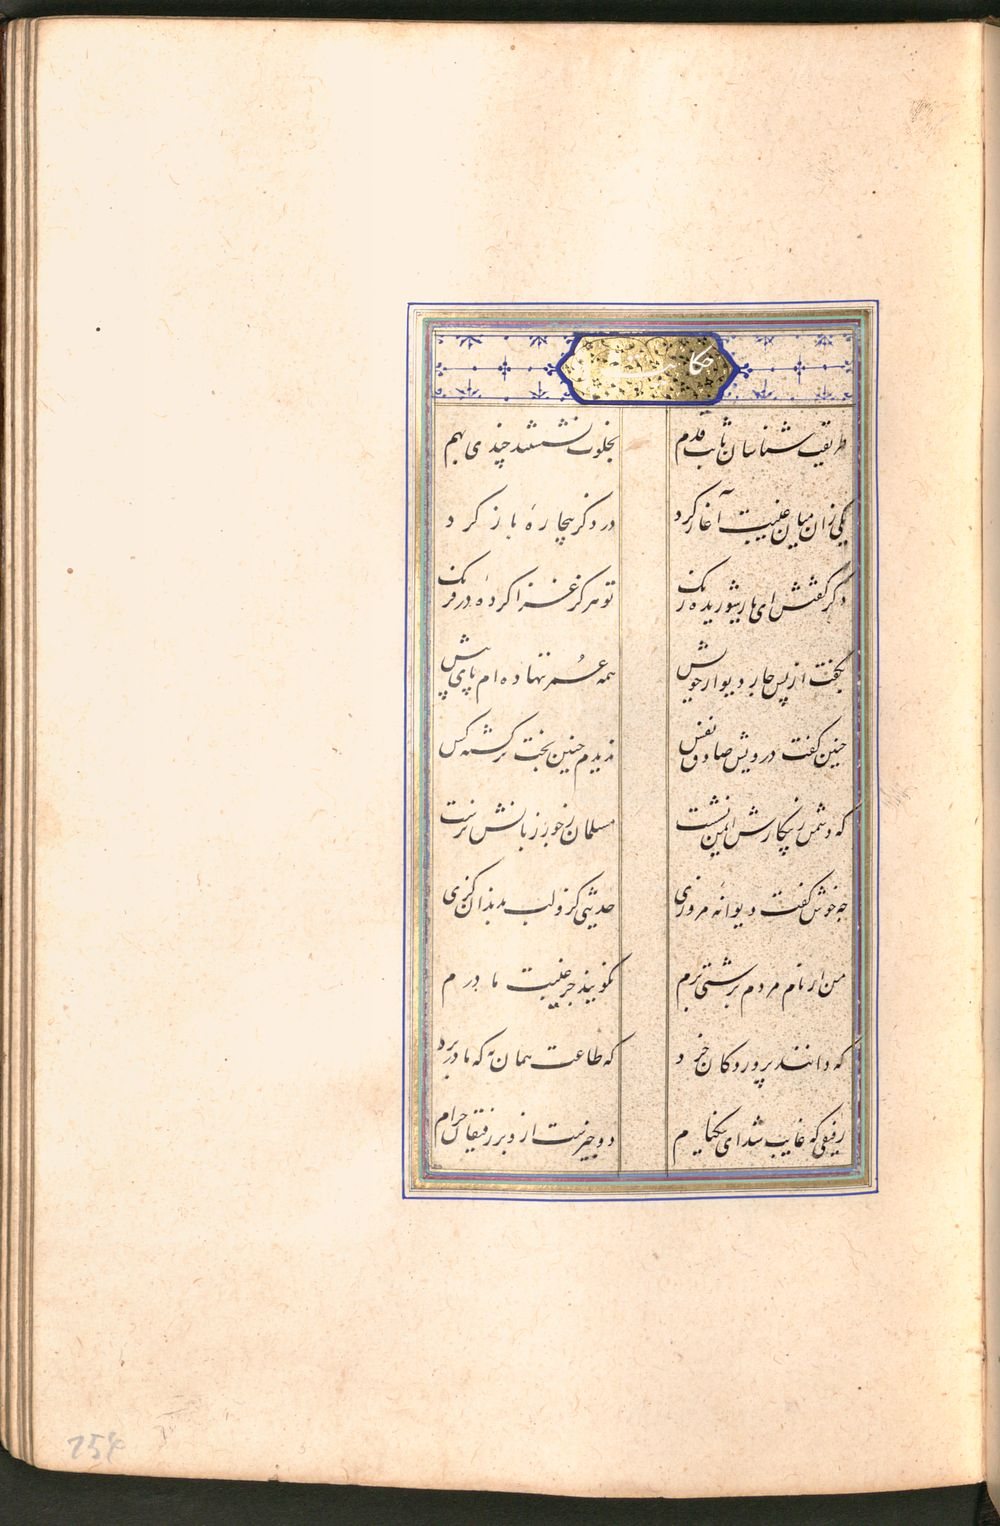 حکایت
طریقت شناسان ثابت قدم بخلوت نشستند چندی بهم
یکی زان میان غیبت آغاز کرد در ذکر بیچارهٔ باز کرد
دگر گفتش ای یار شوریده رنگ تو هرگز غزا کردهٔ در فرنگ
بگفت از پس چار دیوار خویش همه عمر ننهاده ام پای پیش
چنین گفت درویش صادق نفس ندیدم چنین بخت برگشته کس
که دشمن ز پیکارش ایمن نشست مسلمان ز جور زبانش نرست
چه خوش گفت دیوانهٔ مروزی حدیثی کزو لب بدندان گزی
من ار نام مردم بزشتی برم نگویند جز غیبت مادرم
که دانند پروردگان خرد که طاعت همان به که مادر برد
رفیقی که غایب شد ای نیکنام دو چیزست ازو بر رفیقان حرام
254